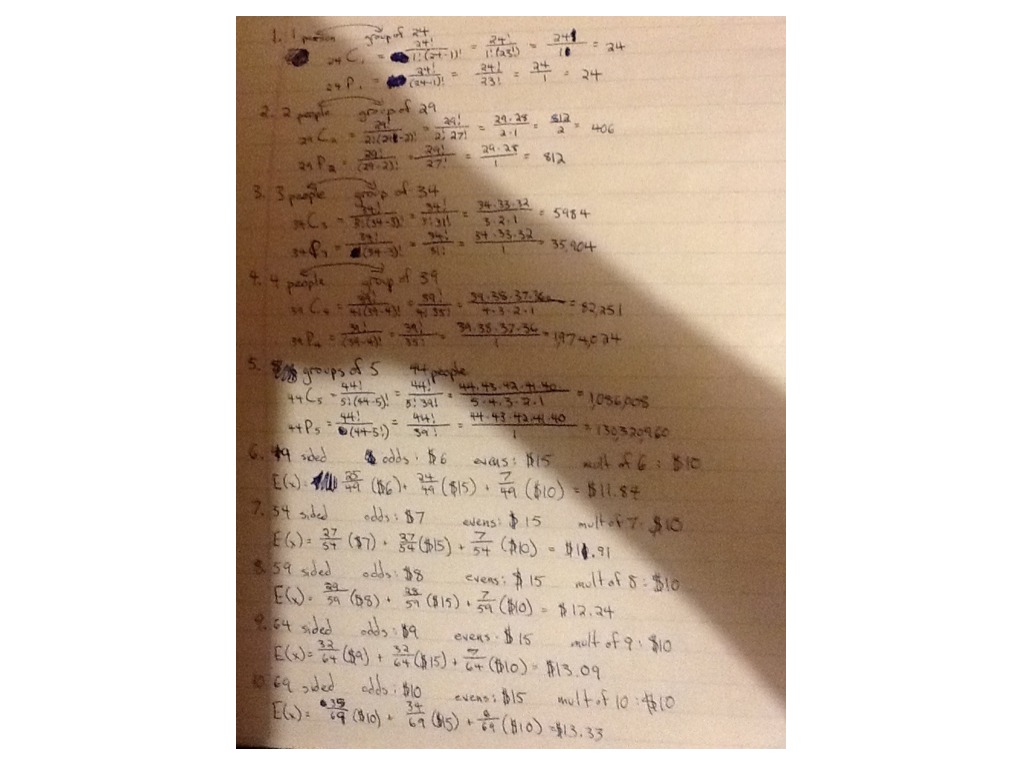 1. 1 person group of 24
24C1 = 24!/1!(24-1)! = 24!/1!(23!) = 24/1 = 24
24P1 = 24!/(24-1)! = 24!/23! = 24/1 = 24
2. 2 people group of 29
29C2 = 29!/2!(29-2)! = 29!/2!27! = 29·28/2·1 = 812/2 = 406
29P2 = 29!/(29-2)! = 29!/27! = 29·28/1 = 812
3. 3 people group of 34
34C3 = 34!/3!(34-3)! = 34!/3!31! = 34·33·32/3·2·1 = 5984
34P3 = 34!/(34-3)! = 34!/31! = 34·33·32/1 = 35,904
4. 4 people group of 39
39C4 = 39!/4!(39-4)! = 39!/4!35! = 39·38·37·36/4·3·2·1 = 82,251
39P4 = 39!/(39-4)! = 39!/35! = 39·38·37·36/1 = 1,974,024
5. groups of 5 44 people
44C5 = 44!/5!(44-5)! = 44!/5!39! = 44·43·42·41·40/5·4·3·2·1 = 1,086,008
44P5 = 44!/(44-5!) = 44!/39! = 44·43·42·41·40/1 = 130,320,960
6. 49 sided odds: $6 evens: $15 mult of 6: $10
E(x) = 25/49 ($6) + 24/49 ($15) + 7/49 ($10) = $11.84
7. 54 sided odds: $7 evens: $15 mult of 7: $10
E(x) = 27/54 ($7) + 27/54 ($15) + 7/54 ($10) = $11.91
8. 59 sided odds: $8 evens: $15 mult of 8: $10
E(x) = 29/59 ($8) + 29/59 ($15) + 7/59 ($10) = $12.24
9. 64 sided odds: $9 evens: $15 mult of 9: $10
E(x) = 32/64 ($9) + 32/64 ($15) + 7/64 ($10) = $13.09
10. 69 sided odds: $10 evens: $15 mult of 10: $10
E(x) = 35/69 ($10) + 34/69 ($15) + /69 ($10) = $13.33